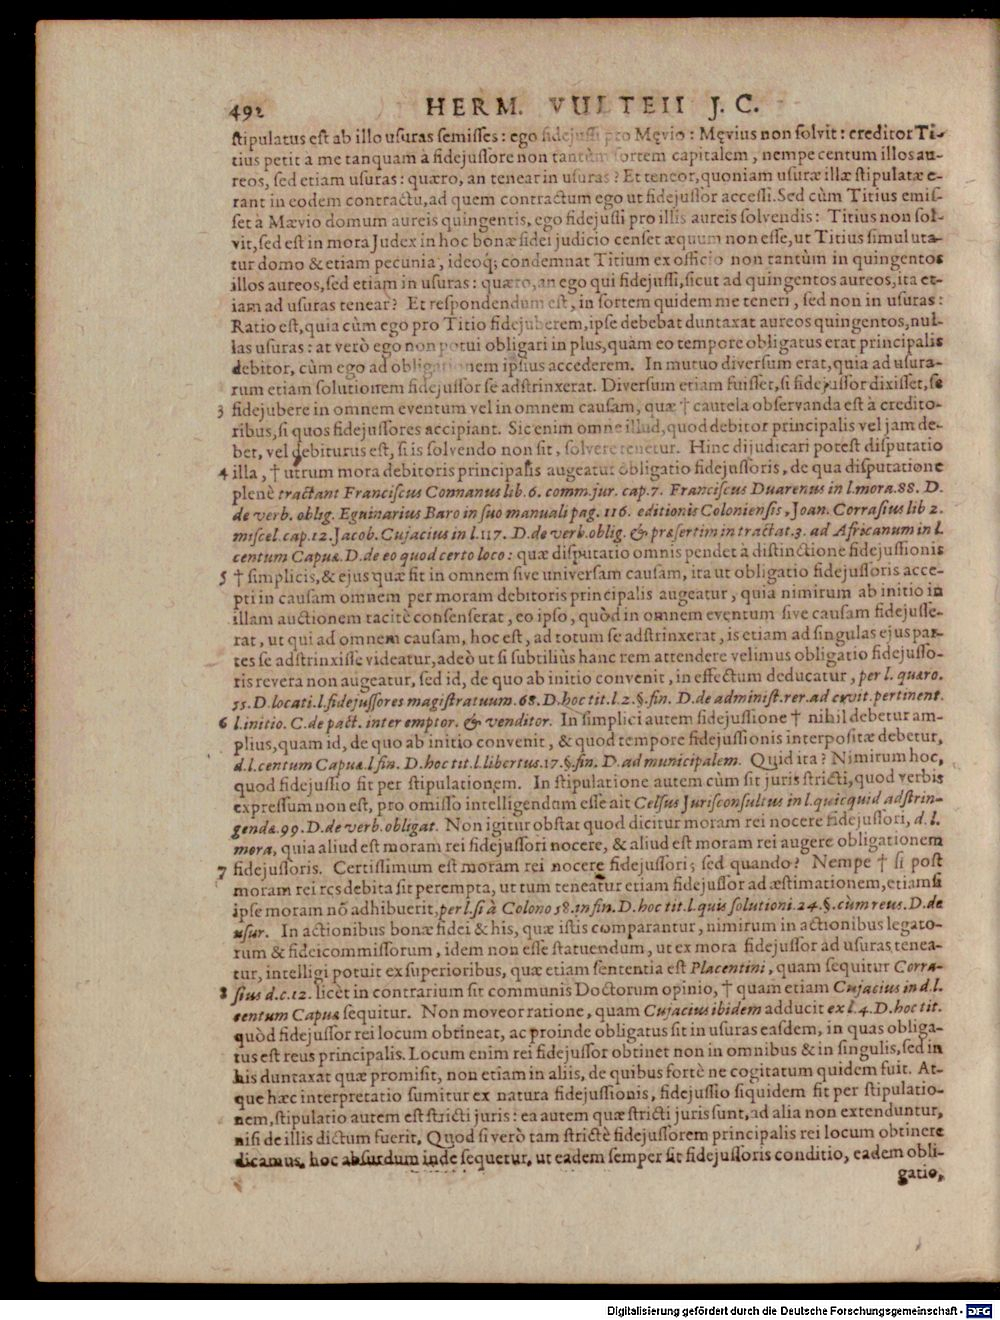 492 HERM. VULTEII J. C.
ſtipulatus eſt ab illo uſuras ſemiſſes: ego fidejuſſi pro Męvio: Męvius non ſolvit: creditor Ti-
tius petit à me tanquam à fidejuſſore non tantùm ſortem capitalem, nempe centum illos au-
reos, ſed etiam uſuras: quæro, an tenear in uſuras? Et teneor, quoniam uſuræ illæ ſtipulatæ e-
rant in eodem contractu, ad quem contractum ego ut fidejuſſor acceſſi. Sed cùm Titius emiſ-
ſet à Mævio domum aureis quingentis, ego fidejuſſi pro illis aureis ſolvendis: Titius non ſol-
vit, ſed eſt in mora Judex in hoc bonæ fidei judicio cenſet æquum non eſſe, ut Titius ſimul uta-
tur domo & etiam pecunia, ideoq́; condemnat Titium ex officio non tantùm in quingentos
illos aureos, ſed etiam in uſuras: quæro, an ego qui fidejuſſi, ſicut ad quingentos aureos, ita et-
iam ad uſuras tenear? Et reſpondendum eſt, in ſortem quidem me teneri, ſed non in uſuras:
Ratio eſt, quia cùm ego pro Titio fidejuberem, ipſe debebat duntaxat aureos quingentos, nul-
las uſuras: at verò ego non potui obligari in plus, quàm eo tempore obligatus erat principalis
debitor, cùm ego ad obligationem ipſius accederem. In mutuo diverſum erat, quia ad uſura-
rum etiam ſolutionem fidejuſſor ſe adſtrinxerat. Diverſum etiam fuiſſet, ſi fidejuſſor dixiſſet, ſe
3 fidejubere in omnem eventum vel in omnem cauſam, quæ † cautela obſervanda eſt à credito-
ribus, ſi quos fidejuſſores accipiant. Sic enim omne illud, quod debitor principalis vel jam de-
bet, vel debiturus eſt, ſi is ſolvendo non ſit, ſolvere tenetur. Hinc dijudicari poteſt diſputatio
4 illa, † utrum mora debitoris principalis augeatur obligatio fidejuſſoris, de qua diſputatione
plenè tractant Franciſcus Connanus lib. 6. comm. jur. cap. 7. Franciſcus Duarenus in l. mora. 88. D.
de verb. oblig. Eguinarius Baro in ſuo manuali pag. 116. editionis Colonienſis, Joan. Corraſius lib 2.
miſcel. cap. 12. Jacob. Cujacius in l. 117. D. de verb. oblig. & præſertim in tractat. 3. ad Africanum in l.
centum Capuæ. D. de eo quod certo loco: quæ diſputatio omnis pendet à diſtinctione fidejuſſionis
5 † ſimplicis, & ejus quæ fit in omnem ſive univerſam cauſam, ita ut obligatio fidejuſſoris acce-
pti in cauſam omnem per moram debitoris principalis augeatur, quia nimirum ab initio in
illam auctionem tacitè conſenſerat, eo ipſo, quòd in omnem eventum ſive cauſam fidejuſſe-
rat, ut qui ad omnem cauſam, hoc eſt, ad totum ſe adſtrinxerat, is etiam ad ſingulas ejus par-
tes ſe adſtrinxiſſe videatur, adeò ut ſi ſubtiliùs hanc rem attendere velimus obligatio fidejuſſo-
ris revera non augeatur, ſed id, de quo ab initio convenit, in effectum deducatur, per l. quæro.
55. D. locati. l. fidejuſſores magiſtratuum. 68. D. hoc tit. l. 2. §. fin. D. de adminiſt. rer. ad civit. pertinent.
6 l. initio. C. de pact. inter emptor. & venditor. In ſimplici autem fidejuſſione † nihil debetur am-
plius, quam id, de quo ab initio convenit, & quod tempore fidejuſſionis interpoſitæ debetur,
d. l. centum Capuæ. l. fin. D. hoc tit. l. libertus. 17. §. fin. D. ad municipalem. Quid ita? Nimirum hoc,
quod fidejuſſio fit per ſtipulationem. In ſtipulatione autem cùm ſit juris ſtricti, quod verbis
expreſſum non eſt, pro omiſſo intelligendum eſſe ait Celſus Juriſconſultus in l. quicquid adſtrin-
gendæ. 99. D. de verb. obligat. Non igitur obſtat quod dicitur moram rei nocere fidejuſſori, d. l.
mora, quia aliud eſt moram rei fidejuſſori nocere, & aliud eſt moram rei augere obligationem
7 fidejuſſoris. Certiſſimum eſt moram rei nocere fidejuſſori; ſed quando? Nempe † ſi poſt
moram rei res debita ſit perempta, ut tum teneatur etiam fidejuſſor ad æſtimationem, etiamſi
ipſe moram nō adhibuerit, per l. ſi à Colono 58. in fin. D. hoc tit. l. quis ſolutioni. 24. §. cùm reus. D. de
uſur. In actionibus bonæ fidei & his, quæ iſtis comparantur, nimirum in actionibus legato-
rum & fideicommiſſorum, idem non eſſe ſtatuendum, ut ex mora fidejuſſor ad uſuras tenea-
tur, intelligi potuit ex ſuperioribus, quæ etiam ſententia eſt Placentini, quam ſequitur Corra-
8 ſius d. c. 12. licèt in contrarium ſit communis Doctorum opinio, † quam etiam Cujacius in d. l.
centum Capuæ ſequitur. Non moveor ratione, quam Cujacius ibidem adducit ex l. 4. D. hoc tit.
quòd fidejuſſor rei locum obtineat, ac proinde obligatus ſit in uſuras eaſdem, in quas obliga-
tus eſt reus principalis. Locum enim rei fidejuſſor obtinet non in omnibus & in ſingulis, ſed in
his duntaxat quæ promiſit, non etiam in aliis, de quibus fortè ne cogitatum quidem fuit. At-
que hæc interpretatio ſumitur ex natura fidejuſſionis, fidejuſſio ſiquidem fit per ſtipulatio-
nem, ſtipulatio autem eſt ſtricti juris: ea autem quæ ſtricti juris ſunt, ad alia non extenduntur,
niſi de illis dictum fuerit, Quod ſi verò tam ſtrictè fidejuſſorem principalis rei locum obtinere
dicamus, hoc abſurdum inde ſequetur, ut eadem ſemper ſit fidejuſſoris conditio, eadem obli-
gatio,
Digitalisierung gefördert durch die Deutsche Forschungsgemeinschaft - DFG